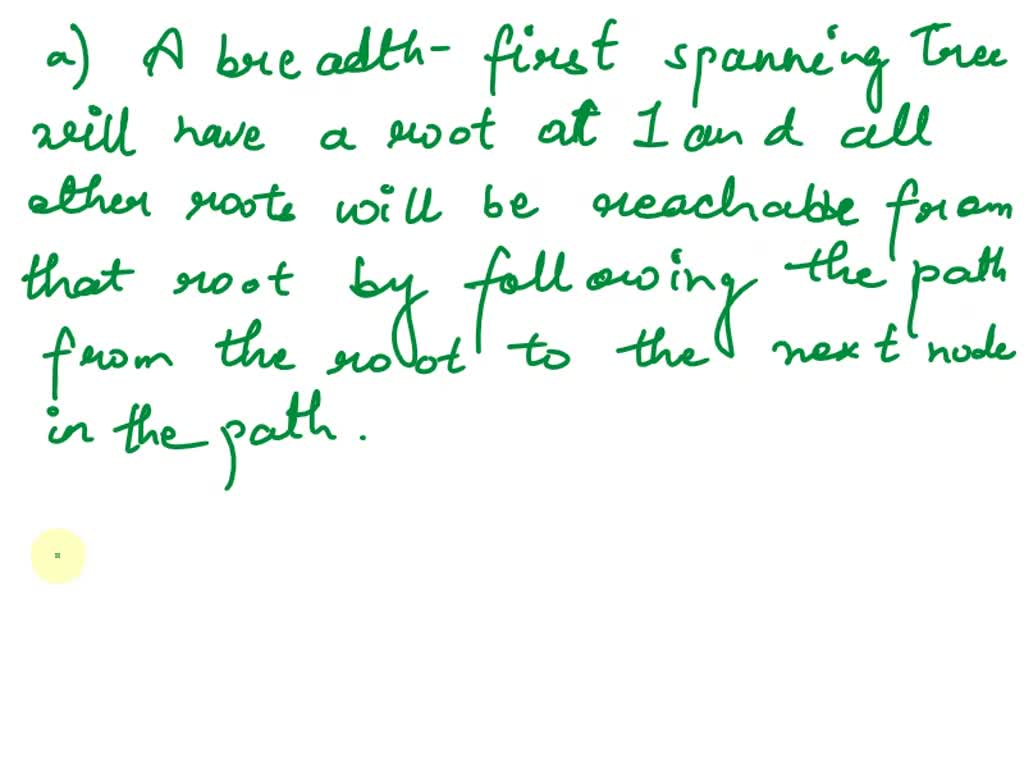 a) A breadth-first spanning Tree
will have a root at 1 and all
other roots will be reachable from
that root by following the path
from the root to the next node
in the path.